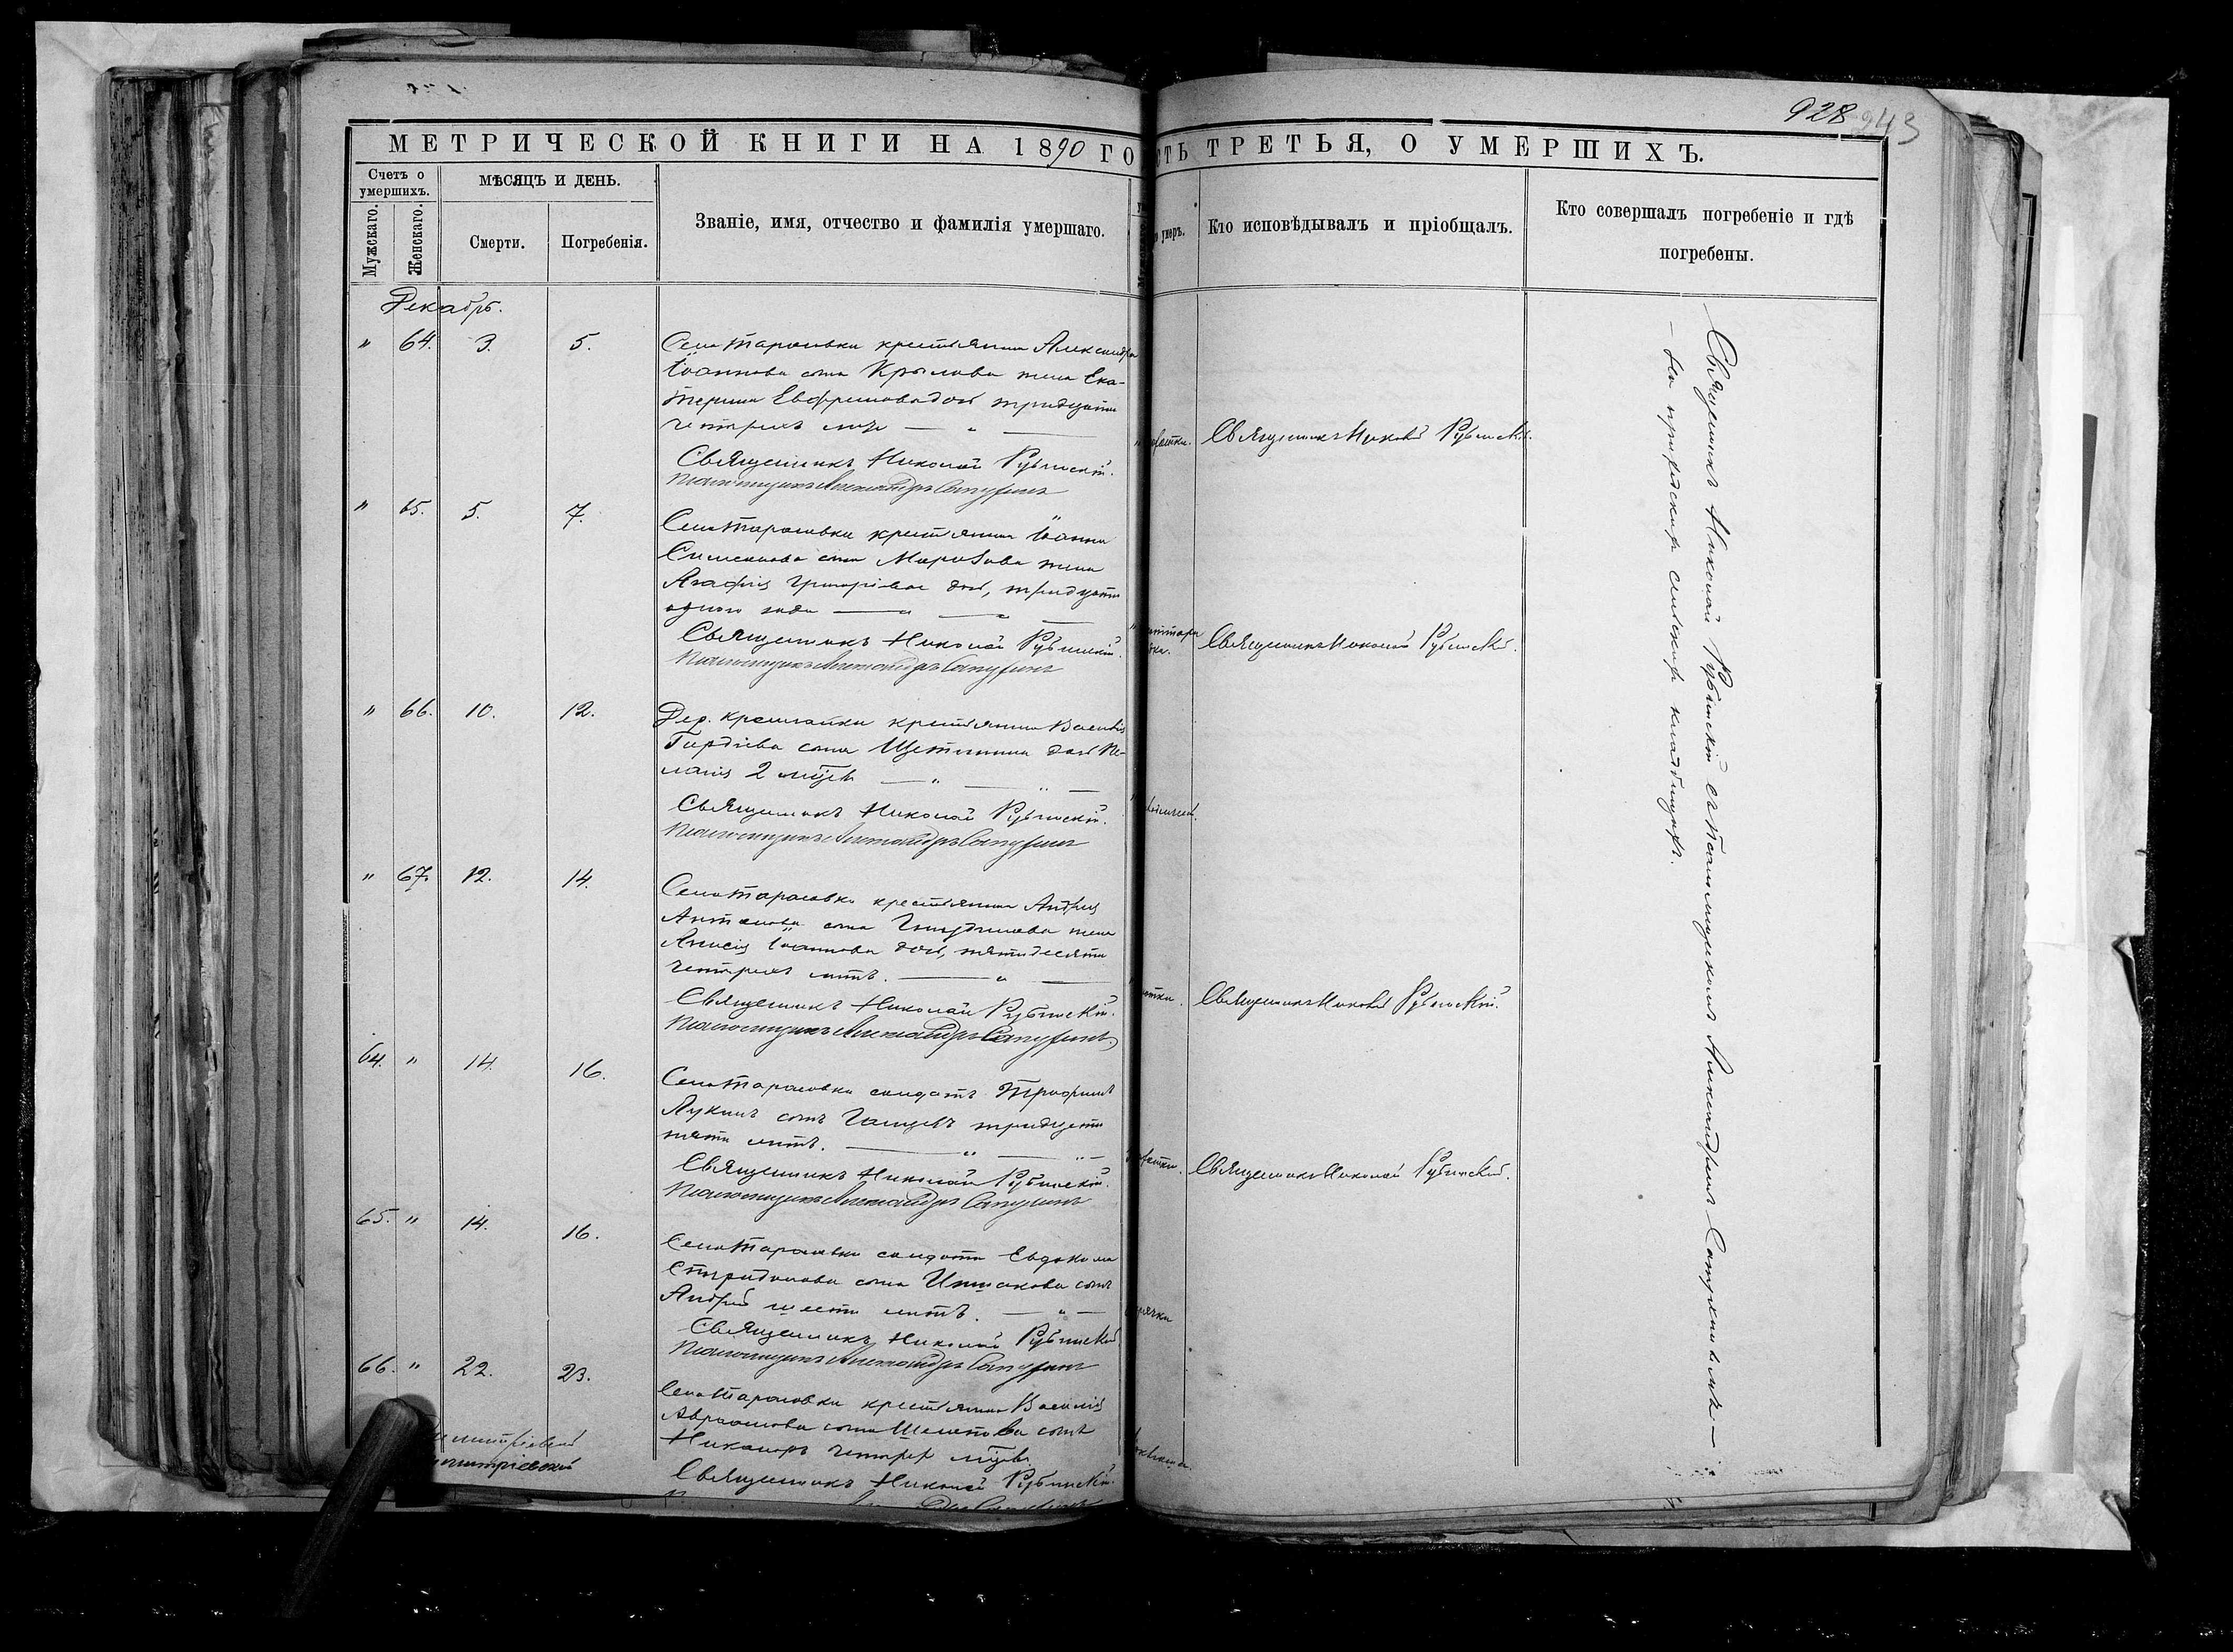 928
243
МЕТРИЧЕСКОЙ КНИГИ НА 1890 ГО
СТЬ ТРЕТЬЯ, О УМЕРШИХЪ.
Счетъ о умершихъ.
Мужскаго.
Женскаго.
МѢСЯЦЪ И ДЕНЬ.
Смерти.
Погребенія.
Званіе, имя, отчество и фамилія умершаго.
умеръ.
Кто исповѣдывалъ и пріобщалъ.
Кто совершалъ погребеніе и гдѣ
погребены.
Декабрь.
" 64. 3. 5. Села Тарасовки крестьянина Александра
Іоаннова сына Крылова жена Ека-
терина Евфремова дочь тридцати
четырехъ лѣтъ — " —
Священникъ Николай Рубинскій.
Псаломщикъ Александръ Сапуринъ
Священникъ Николай Рубинскій.
" 65. 5. 7. Села Тарасовки крестьянина Іоанна
Симеонова сына Морозова жена
Агафія Григоріева дочь, тридцати
одного года — " —
Священникъ Николай Рубинскій.
Псаломщикъ Александръ Сапуринъ
Священникъ Николай Рубинскій.
" 66. 10. 12. Дер. крестьянина Василія
Гордіева сына Щетинина дочь Пе-
лагія 2 мѣсяцевъ — " —
Священникъ Николай Рубинскій.
Псаломщикъ Александръ Сапуринъ
" 67. 12. 14. Села Тарасовки крестьянина Андрея
Антонова сына жена
Анисія Іоаннова дочь, пятидесяти
четырехъ лѣтъ. — " —
Священникъ Николай Рубинскій.
Псаломщикъ Александръ Сапуринъ
Священникъ Николай Рубинскій.
64. " 14. 16. Села Тарасовки солдатъ Трофимъ
Лукинъ сынъ тридцати
пяти лѣтъ. — " —
Священникъ Николай Рубинскій.
Псаломщикъ Александръ Сапуринъ
Священникъ Николай Рубинскій.
65. " 14. 16. Села Тарасовки солдата Евдокима
Спиридонова сына сынъ
Андрей шести лѣтъ. — " —
Священникъ Николай Рубинскій
Псаломщикъ Александръ Сапуринъ
66. " 22. 23. Села Тарасовки крестьянина Василія
Авраамова сына сынъ
Никаноръ четырехъ мѣсяцевъ.
Священникъ Николай Рубинскій.
Священникъ Николай Рубинскій съ псаломщикомъ Александромъ Сапуринымъ —
— На приходскомъ сельскомъ кладбищѣ.